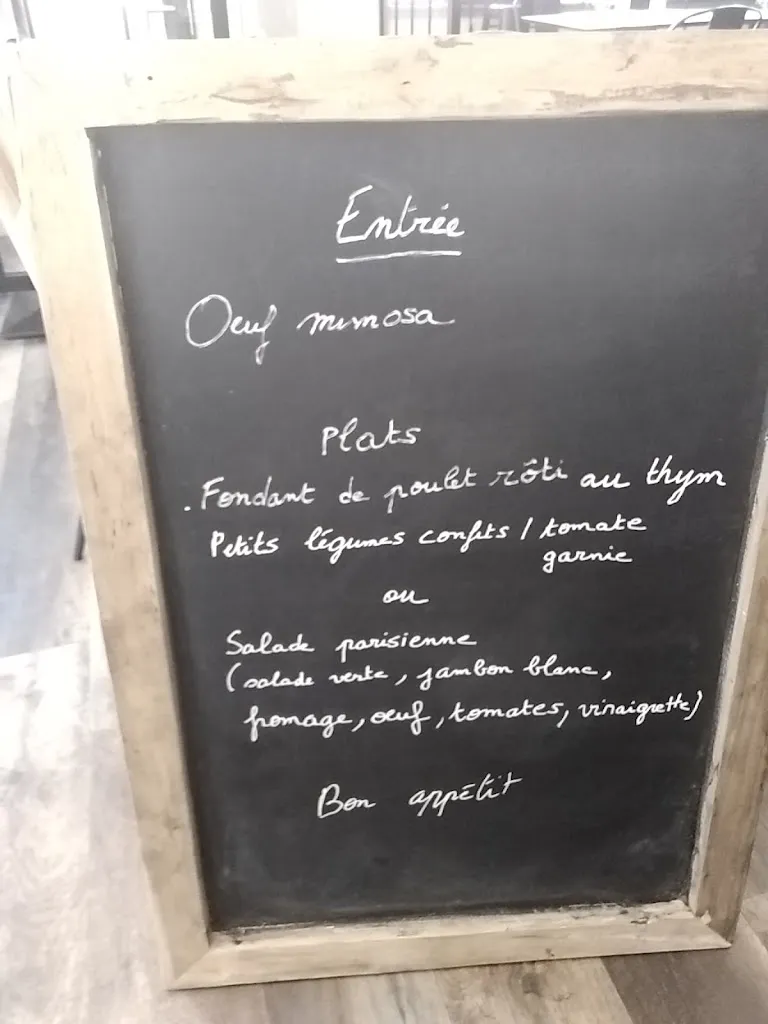 Entrée
Oeuf mimosa
Plats
. Fondant de poulet rôti au thym
Petits légumes confits / tomate
garnie
ou
Salade parisienne
(salade verte, jambon blanc,
fromage, oeuf, tomates, vinaigrette)
Bon appétit